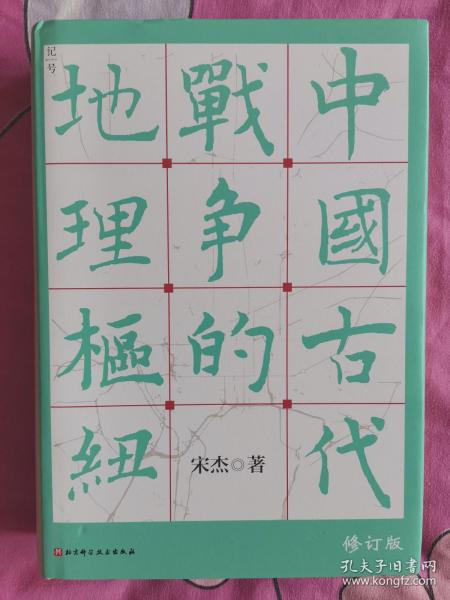 记号
中國古代
戰争的
地理樞紐
宋杰◎著
北京科学技术出版社
修订版
孔夫子旧书网
www.kongfz.com